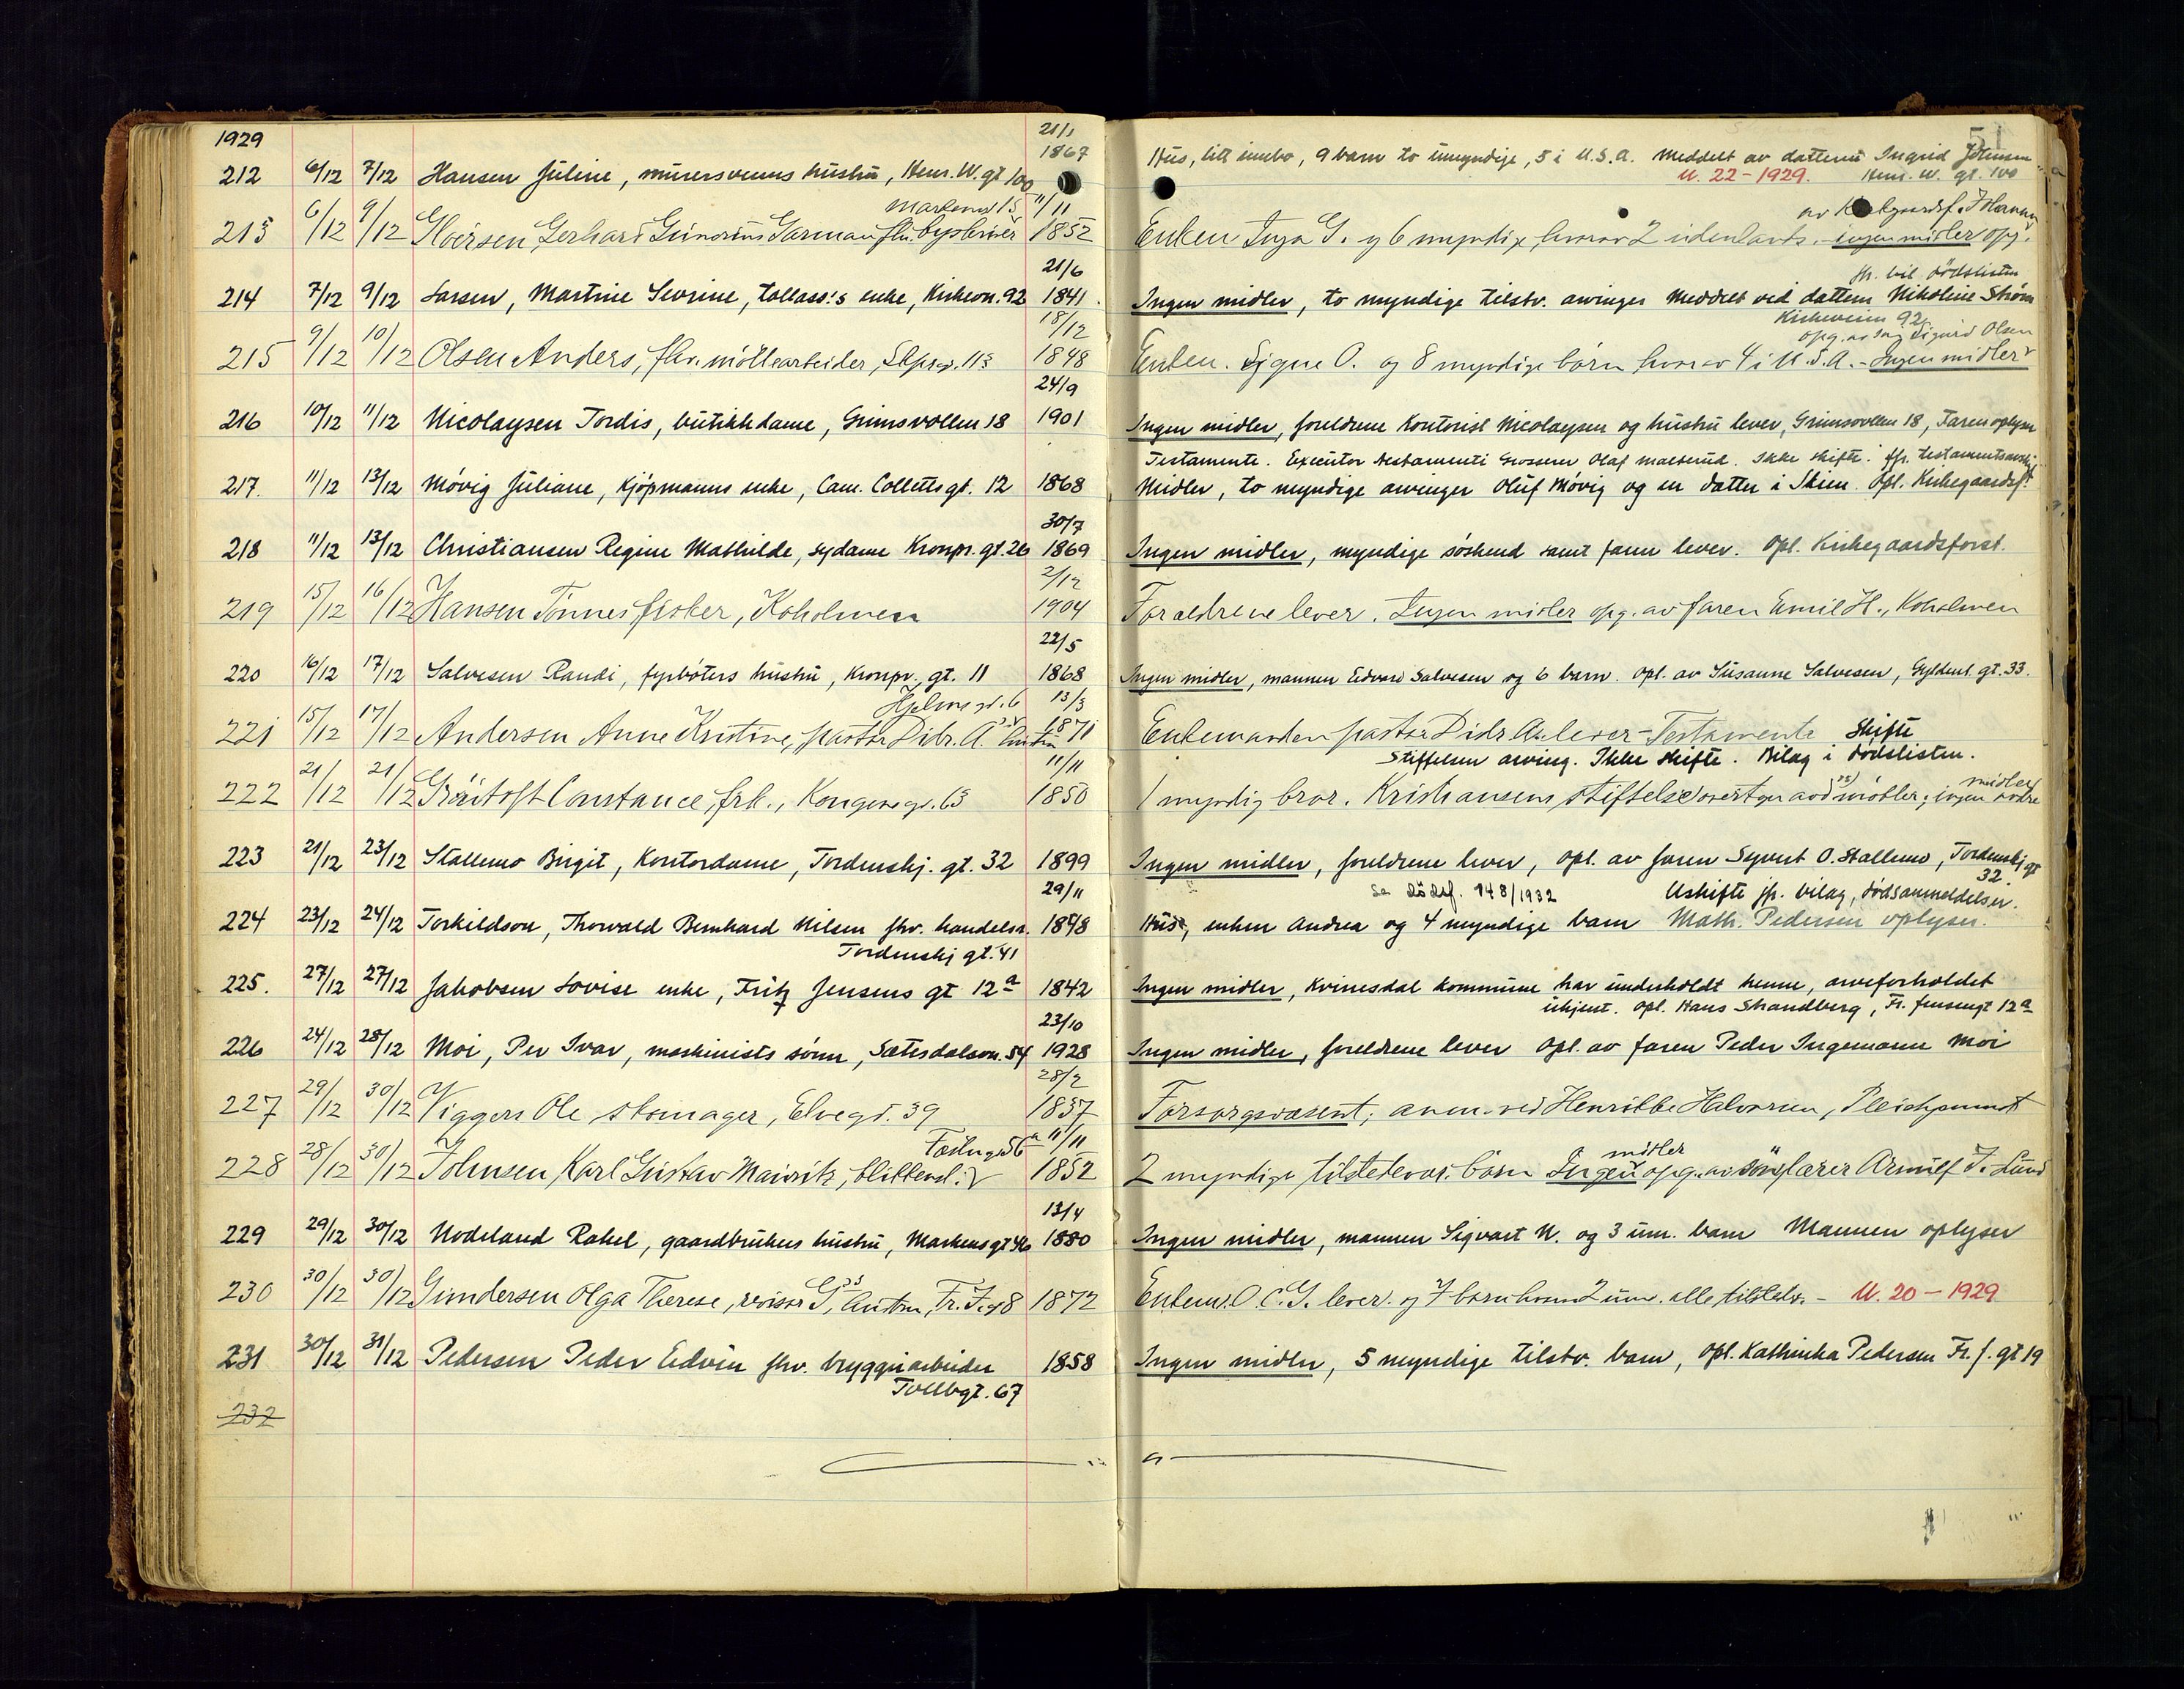 1929
51
212 6/12 7/12 Hansen Juline, murersvenns hustru, Henr. W. gt 100 21/1 1867
Hus, litt innbo, 9 barn to umyndige, 5 i U.S.A. Meddelt av datteren Ingrid Johnsen
U. 22-1929. Henr. W. gt. 100
213 6/12 9/12 Gerhard Gunorius Garman fhv. byskriver 11/11 1852
Markensgt 15
Enken Inga G. og 6 myndige, hvorav 2 udenlands. - ingen midler opg.
214 7/12 9/12 Larsen, Martine Sevrine, tollass:s enke, Kirkevn. 92 21/6 1841
jfr. bil. dødslisten
Ingen midler, to myndige tilstv. arvinger Meddelt ved datteren Nikoline Strøm
Kirkeveien 92
215 9/12 10/12 Olsen Anders, fhv. møllearbeider, Skprgt. 113 18/12 1848
opg. av Sigurd Olsen
Enken. Signe O. og 8 myndige börn hvorav 4 i U.S.A. - Ingen midler
216 10/12 11/12 Nicolaysen Tordis, butikkdame, Grimsvollen 18 24/9 1901
Ingen midler, foreldrene Kontorist Nicolaysen og hustru lever, Grimsvollen 18, Faren oplyser
217. 11/12 13/12 Møvig Juliane, kjøpmanns enke, Cam. Colletts gt. 12 1868
Testamente. Executor testamenti Grosserer Olaf Malterud. Ikke skifte. Jfr. testamentsavskr.
Midler, to myndige arvinger Oluf Møvig og en datter i Skien. Opl. Kirkegaardsf.
218 11/12 13/12 Christiansen Regine Mathilde, sydame Kronpr. gt. 26 30/7 1869
Ingen midler, myndige søskend samt faren lever. Opl. Kirkegaardsforst.
219 15/12 16/12 Hansen Tönnes fisker, Koholmen 2/12 1904
Foraeldrene lever. Ingen midler opg. av faren Emil H., Koholmen
220 16/12 17/12 Salvesen Randi, fyrbøters hustru, Kronpr. gt. 11 22/5 1868
Ingen midler, mannen Edvard Salvesen og 6 barn. Opl. av Susanne Salvesen, Gyldenl. gt. 33.
221 15/12 17/12 Andersen Anne Kristine, pastor Didr. A.s hustru 13/3 1871
Hjelms gt. 6
Enkemanden pastor Didr. An. lever - Testamente Skifte
Stiftelsen arving. Ikke skifte. Bilag i dødslisten.
222 21/12 21/12 Constance frk., Kongensgt. 63 11/11 1850
1 myndig bror. Kristiansens stiftelse overtar avd møbler; ingen andre midler
223 21/12 23/12 Stallemo Birgit, Kontordame, Tordenskj. gt. 32 1899
Ingen midler, foreldrene lever, opl. av faren Syvert O. Stallemo, Tordenskj gt 32.
224 23/12 24/12 Torkildson, Thorvald Bernhard Nilsen fhv. handelsr. 29/11 1848
Tordenskj gt. 41
Se dödsf. 148/1932 Uskifte jfr. bilag, dødsanmeldelser.
Hus, enken Andrea og 4 myndige barn Math. Pedersen oplyser.
225. 27/12 27/12 Jakobsen Lovise enke, Fritz Jensens gt 12a 1842
Ingen midler, Kvinesdal kommune har underholdt henne, arveforholdet
ukjent. Opl. Hans Strandberg, Fr. Jensengt 12a
226 24/12 28/12 Moi, Per Ivar, maskinists sønn, Sætesdalsvn. 54 23/10 1928
Ingen midler, foreldrene lever Opl. av faren Peder Ingemann Moi
227 29/12 30/12 Viggers Ole skomager, Elvegt. 39 28/2 1837
Forsorgsvæsent, anm. ved Henrikke Halvorsen,
228 28/12 30/12 Johnsen Karl Gustav Mauritz, blikkensl. 11/11 1852
Fæstngsgt 56
2 myndige tilstedevær. börn Ingen midler opg. av sön lærer Arnulf J. Lund
229 29/12 30/12 Nodeland Rakel, gaardbrukers hustru, Markensgt 46 13/4 1880
Ingen midler, mannen Sigvart N. og 3 um. barn Mannen oplyser
230 30/12 30/12 Gundersen Olga Therese, revisor G.s hustru, Fr. J. gt 8 1872
Enkem. O. C. G. lever. og 7 barn hvorav 2 um. alle tilstedv. - U. 20-1929
231 30/12 31/12 Pedersen Peder Edvin fhv. bryggeriarbeider 1858
Tollbgt. 67
Ingen midler, 5 myndige tilstv. barn, Opl. Kathinka Pedersen Fr. J. gt 19
232